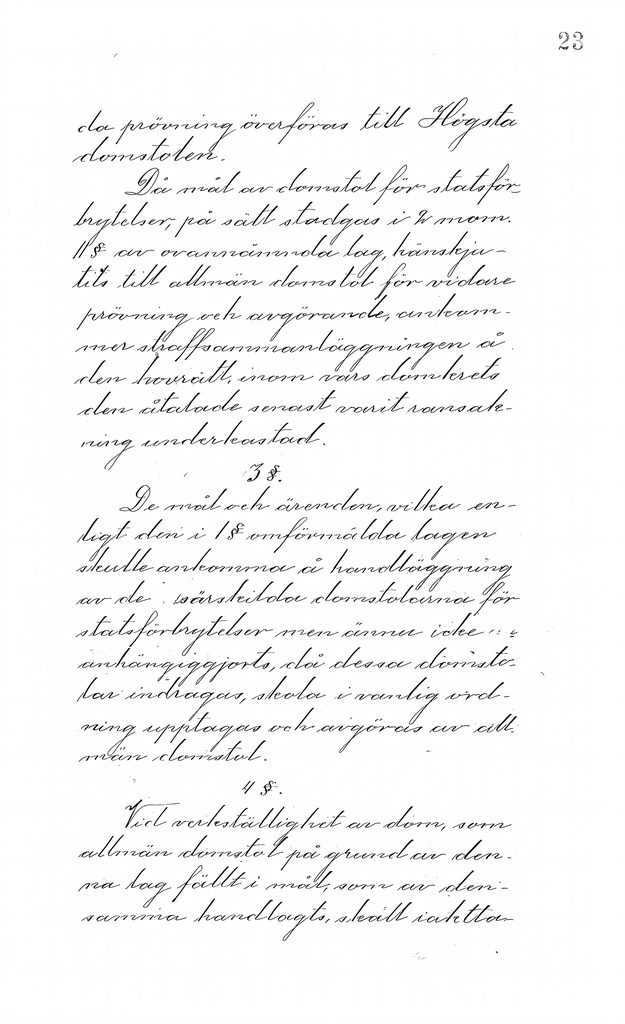 23
da prövning överföras till Högsta
domstolen.
Då mål av domstol för statsför-
brytelser, på sätt stadgas i 2 mom.
11 § av ovannämnda lag, hänskju-
tits till allmän domstol för vidare
prövning och avgörande, ankom-
mer straffsammanläggningen å
den hovrätt, inom vars domkrets
den åtalade senast varit ransak-
ning underkastad.
3 §.
De mål och ärenden, vilka en-
ligt den i 1 § omförmälda lagen
skulle ankomma å handläggning
av de särskilda domstolarna för
statsförbrytelser men ännu icke
anhängiggjorts, då dessa domsto-
lar indragas, skola i vanlig ord-
ning upptagas och avgöras av all-
män domstol.
4 §.
Vid verkställighet av dom, som
allmän domstol på grund av den-
na lag fällt i mål, som av den-
samma handlagts, skall iaktta-